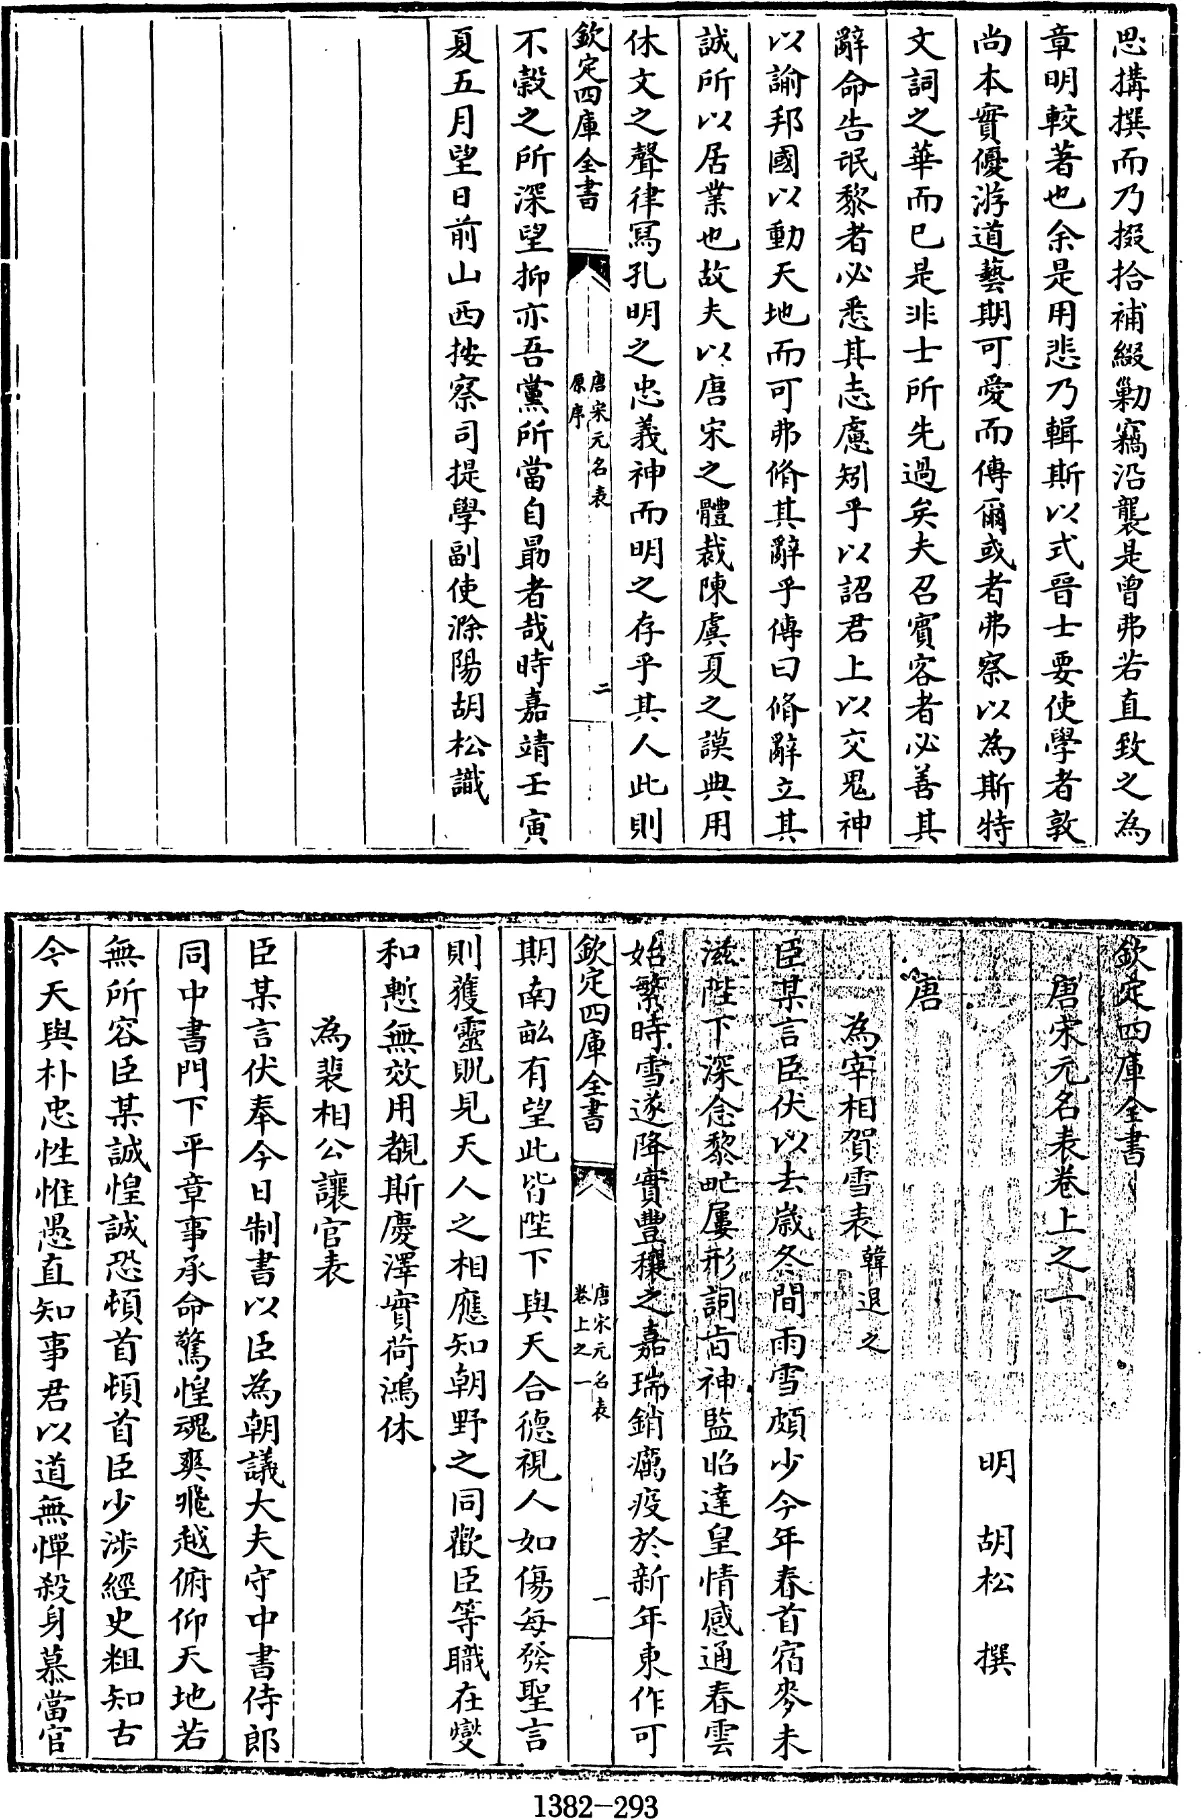 思搆撰而乃掇拾補綴勦竊沿襲是曾弗若直致之為
章明較著也余是用悲乃輯斯以式晉士要使學者敦
尚本實優游道藝期可愛而傳爾或者弗察以為斯特
文詞之華而已是非士所先過矣夫召賓客者必善其
辭命告氓黎者必悉其志慮矧乎以詔君上以交鬼神
以諭邦國以動天地而可弗脩其辭乎傳曰脩辭立其
誠所以居業也故夫以唐宋之體裁陳虞夏之謨典用
休文之聲律寫孔明之忠義神而明之存乎其人此則
欽定四庫全書 唐宋元名表 原序 二
不穀之所深望抑亦吾黨所當自勗者哉時嘉靖壬寅
夏五月望日前山西按察司提學副使滁陽胡松識
欽定四庫全書
唐宋元名表卷上之一
明 胡松 撰
唐
為宰相賀雪表 韓退之
臣某言臣伏以去歲冬間雨雪頗少今年春首宿麥未
滋陛下深念黎甿屢形詞旨神監昭達皇情感通春雲
始繁時雪遂降實豐穰之嘉瑞銷癘疫於新年東作可
欽定四庫全書 唐宋元名表 卷上之一 一
期南畝有望此皆陛下與天合德視人如傷每發聖言
則獲靈貺見天人之相應知朝野之同歡臣等職在燮
和慙無效用覩斯慶澤實荷鴻休
為裴相公讓官表
臣某言伏奉今日制書以臣為朝議大夫守中書侍郎
同中書門下平章事承命驚惶魂爽飛越俯仰天地若
無所容臣某誠惶誠恐頓首頓首臣少涉經史粗知古
今天與朴忠性惟愚直知事君以道無憚殺身慕當官
1382-293